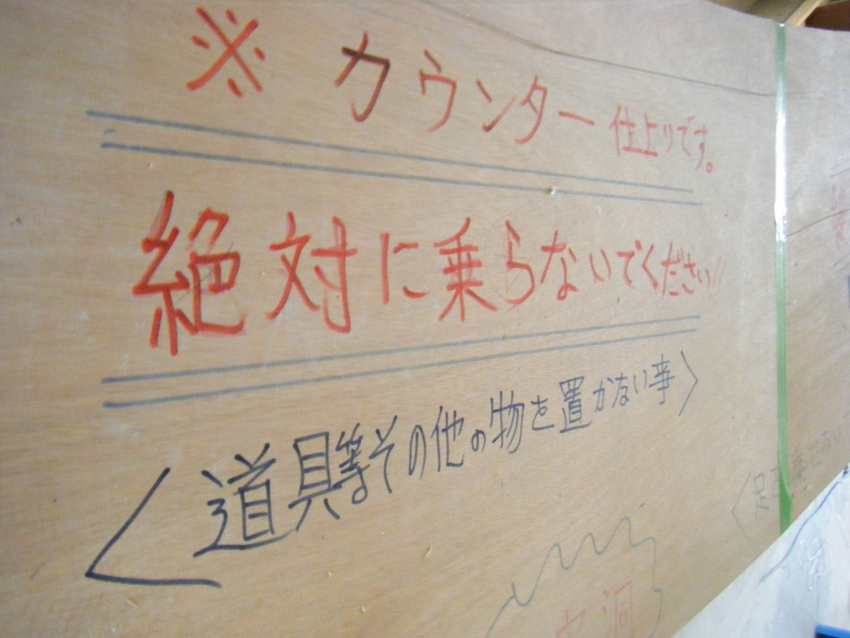 ※ カウンター仕上りです。
絶対に乗らないでください!!
<道具等その他の物を置かない事>
空洞